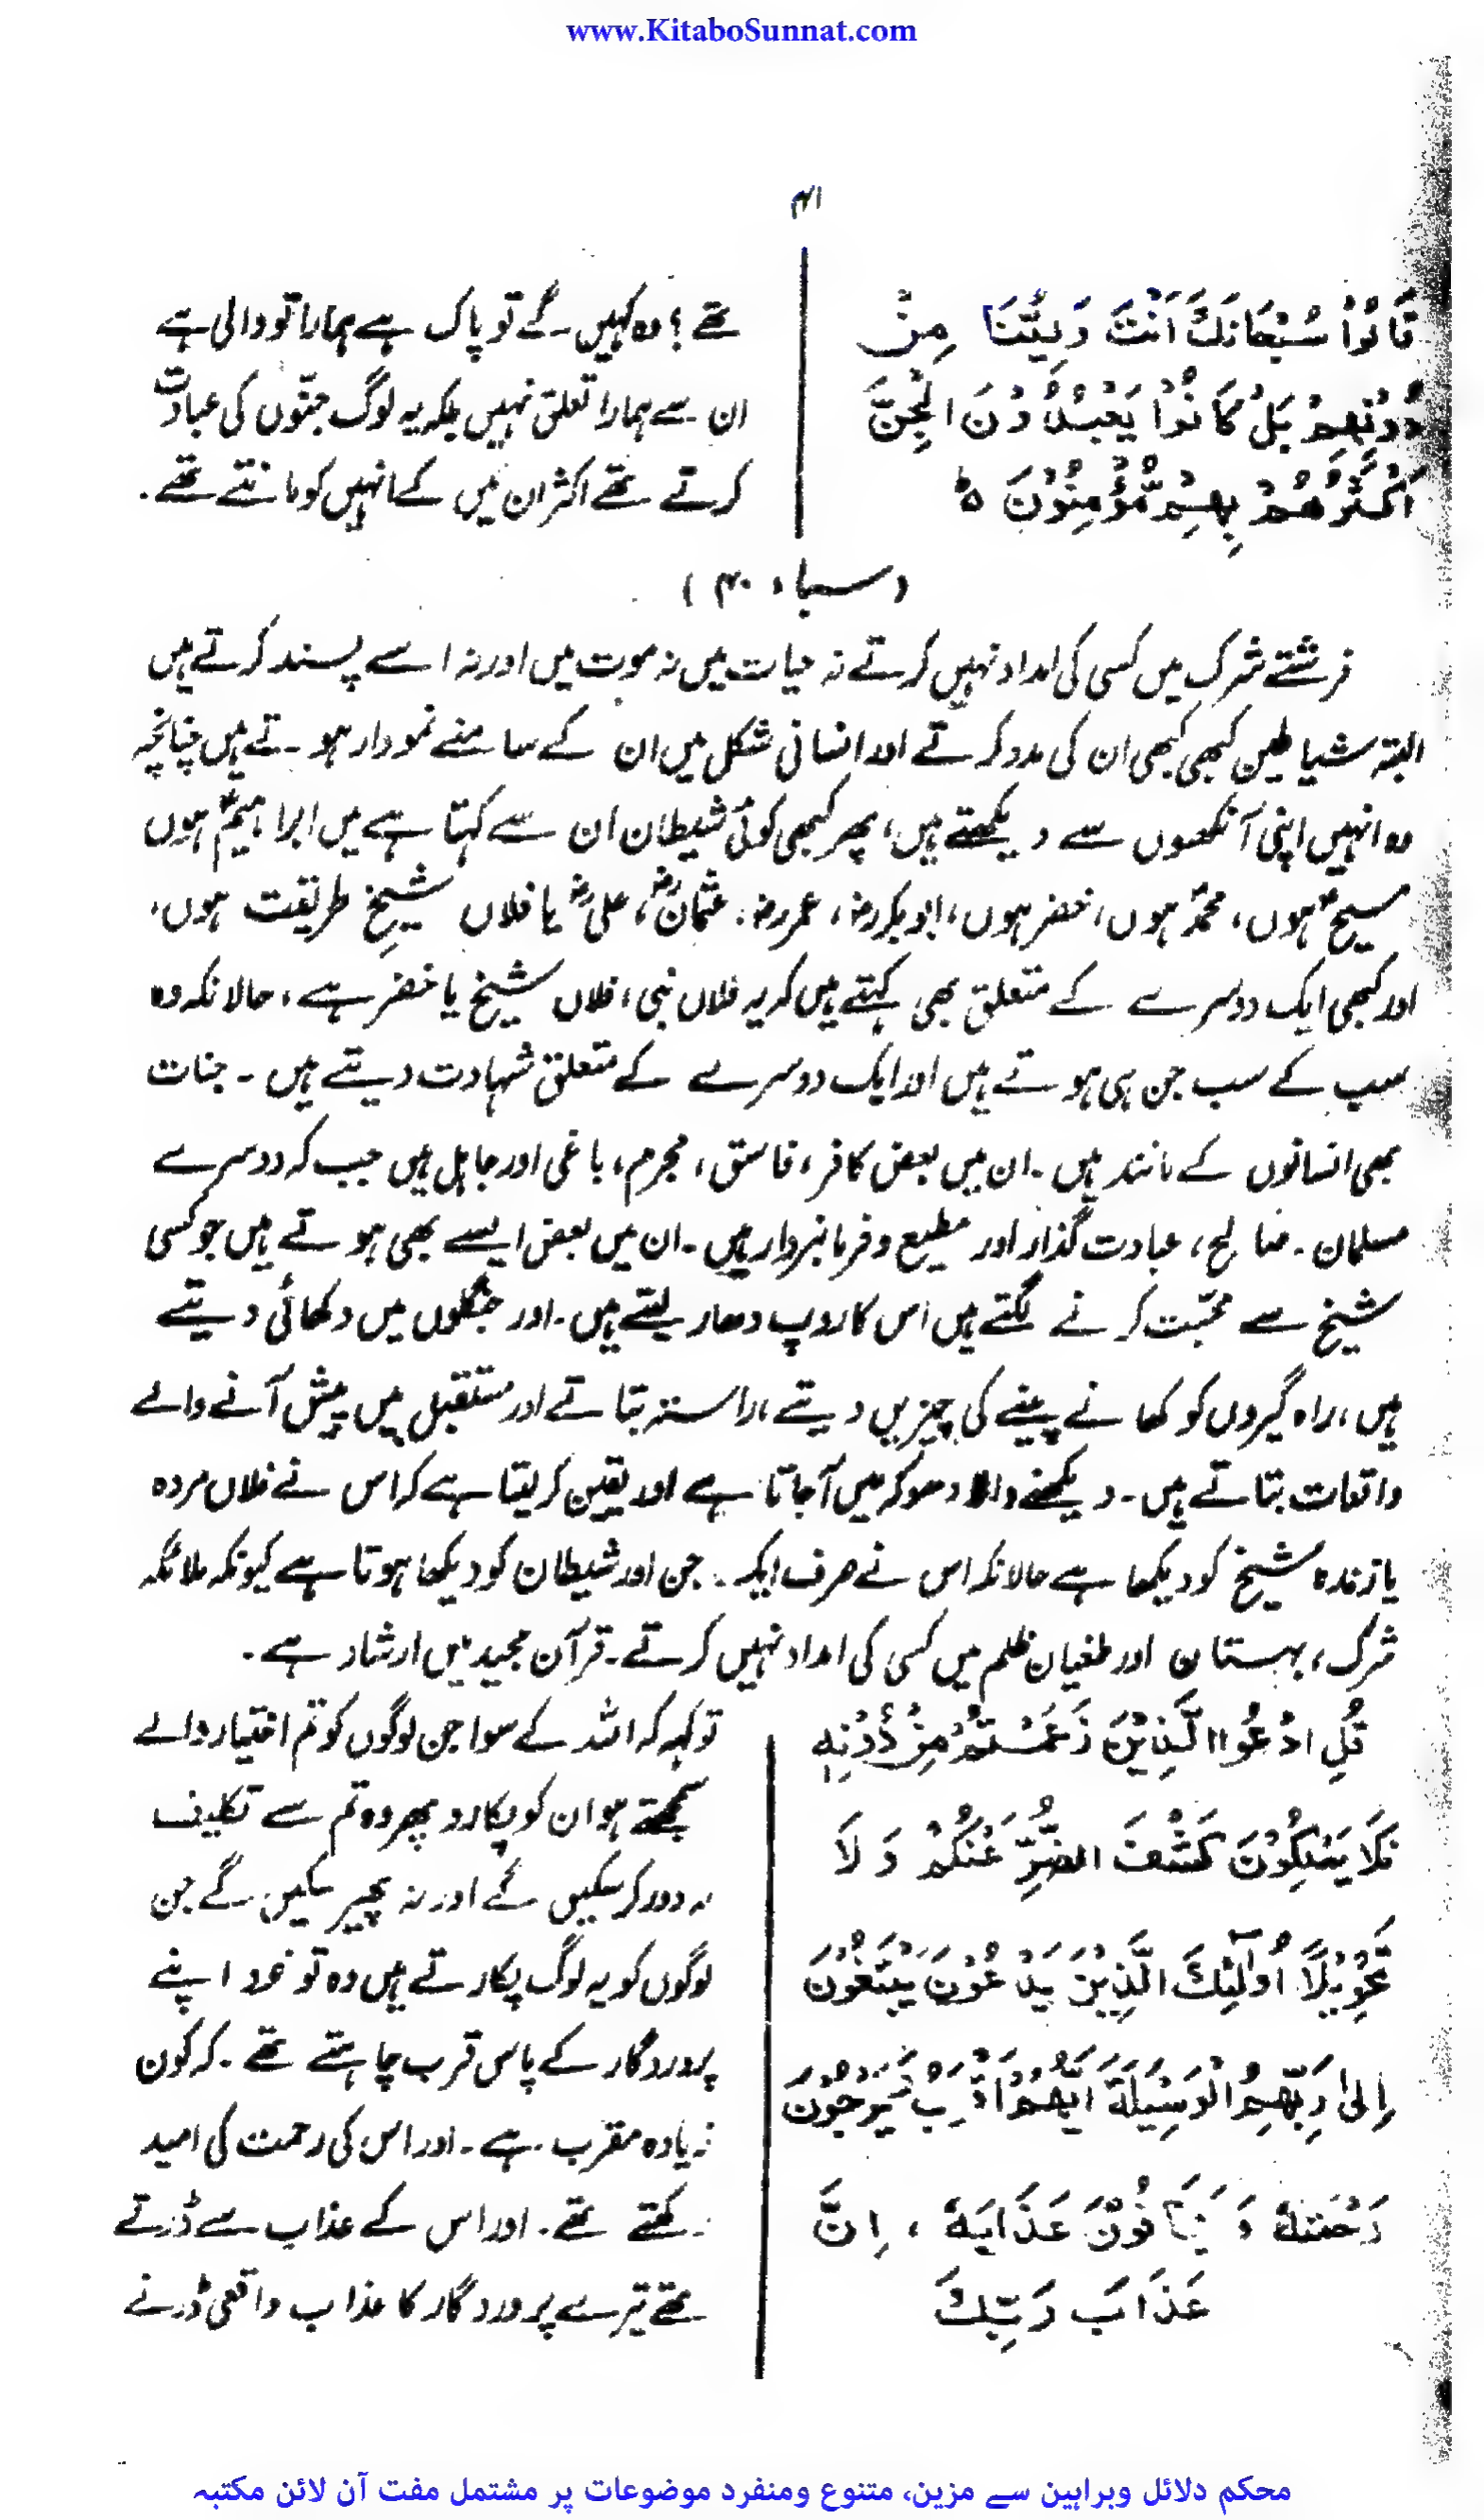 www.KitaboSunnat.com
۴۱
قَالُوْا سُبْحَانَكَ اَنْتَ وَلِيُّنَا مِنْ
دُوْنِهِمْ بَلْ كَانُوْا يَعْبُدُوْنَ الْجِنَّ
اَكْثَرُهُمْ بِهِمْ مُّؤْمِنُوْنَ ہ
تھے؟ وہ کہیں گے تو پاک ہے ہمارا تو والی ہے
ان سے ہمارا تعلق نہیں بلکہ یہ لوگ جنّوں کی عبادت
کرتے تھے اکثر ان میں کے انہیں کو مانتے تھے.
(سباء ۴۰)
فرشتے شرک میں کسی کی امداد نہیں کرتے نہ حیات میں نہ موت میں اور نہ اسے پسند کرتے ہیں
البتہ شیاطین کبھی کبھی ان کی مدد کرتے اور انسانی شکل میں ان کے سامنے نمودار ہوتے ہیں چنانچہ
وہ انہیں اپنی آنکھوں سے دیکھتے ہیں، پھر کبھی کوئی شیطان ان سے کہتا ہے میں ابراہیمؑ ہوں
مسیحؑ ہوں، محمدؐ ہوں، خضر ہوں، ابوبکررض، عمررض، عثمانؓ، علیؓ یا فلاں شیخِ طریقت ہوں،
اور کبھی ایک دوسرے کے متعلق بھی کہتے ہیں کہ یہ فلاں نبی، فلاں شیخ یا خضر ہے، حالانکہ وہ
سب کے سب جن ہی ہوتے ہیں اور ایک دوسرے کے متعلق شہادت دیتے ہیں ۔ جنات
بھی انسانوں کے مانند ہیں ۔ ان میں بعض کافر، فاسق، مجرم، باغی اور جاہل ہیں جب کہ دوسرے
مسلمان ۔ صالح، عبادت گذار اور مطیع و فرمانبردار ہیں ۔ ان میں بعض ایسے بھی ہوتے ہیں جو کسی
شیخ سے محبّت کرنے لگتے ہیں اس کا روپ دھار لیتے ہیں ۔ اور جنگلوں میں دکھائی دیتے
ہیں، راہ گیروں کو کھانے پینے کی چیزیں دیتے، راستہ بتاتے اور مستقبل میں پیش آنے والے
واقعات بتاتے ہیں ۔ دیکھنے والا دھوکہ میں آجاتا ہے اور یقین کر لیتا ہے کہ اس نے فلاں مردہ
یا زندہ شیخ کو دیکھا ہے حالانکہ اس نے صرف ایک جن اور شیطان کو دیکھا ہوتا ہے کیونکہ ملائکہ
شرک، بہتان اور طغیان ظلم میں کسی کی امداد نہیں کرتے ۔ قرآن مجید میں ارشاد ہے ۔
قُلِ ادْعُوا الَّذِيْنَ زَعَمْتُمْ مِنْ دُوْنِهٖ
فَلَا يَمْلِكُوْنَ كَشْفَ الضُّرِّ عَنْكُمْ وَلَا
تَحْوِيْلًا اُولٰٓئِكَ الَّذِيْنَ يَدْعُوْنَ يَبْتَغُوْنَ
اِلىٰ رَبِّهِمُ الْوَسِيْلَةَ اَيُّهُمْ اَقْرَبُ وَيَرْجُوْنَ
رَحْمَتَهٗ وَيَخَافُوْنَ عَذَابَهٗ ، اِنَّ
عَذَابَ رَبِّكَ
تو کہہ کہ اللہ کے سوا جن لوگوں کو تم اختیار والے
سمجھتے ہو ان کو پکارو پھر وہ تم سے تکلیف
نہ دور کرسکیں گے اور نہ پھیر سکیں گے جن
لوگوں کو یہ لوگ پکارتے ہیں وہ تو خود اپنے
پروردگار کے پاس قرب چاہتے تھے ۔ کہ کون
زیادہ مقرب ہے ۔ اور اس کی رحمت کی امید
رکھتے تھے ۔ اور اس کے عذاب سے ڈرتے
تھے تیرے پروردگار کا عذاب واقعی ڈرنے
محکم دلائل وبراہین سے مزین، متنوع ومنفرد موضوعات پر مشتمل مفت آن لائن مکتبہ